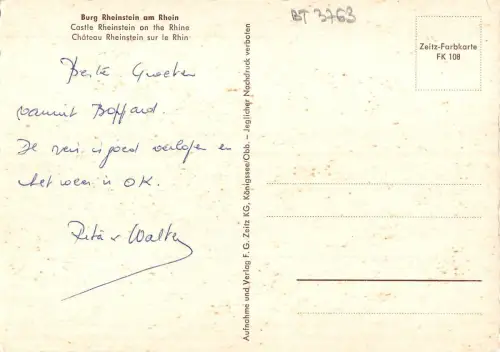 Burg Rheinstein am Rhein
Castle Rheinstein on the Rhine
Château Rheinstein sur le Rhin
BT 3763
Zeitz-Farbkarte
FK 108
Beste Groeten
vanuit Boppard.
De reis is goed verlopen en
het weer is OK.
Rita v Walter
Aufnahme und Verlag F. G. Zeitz KG, Königssee/Obb. – Jeglicher Nachdruck verboten